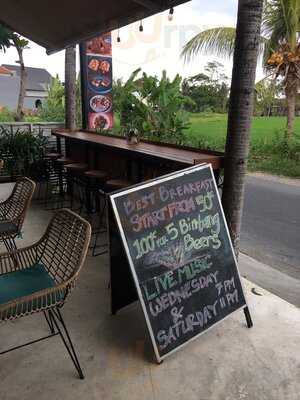 BEST BREAKFAST
START FROM 50
100K for 5 Bintang
Beers
LIVE MUSIC
WEDNESDAY 7PM
&
SATURDAY 7PM